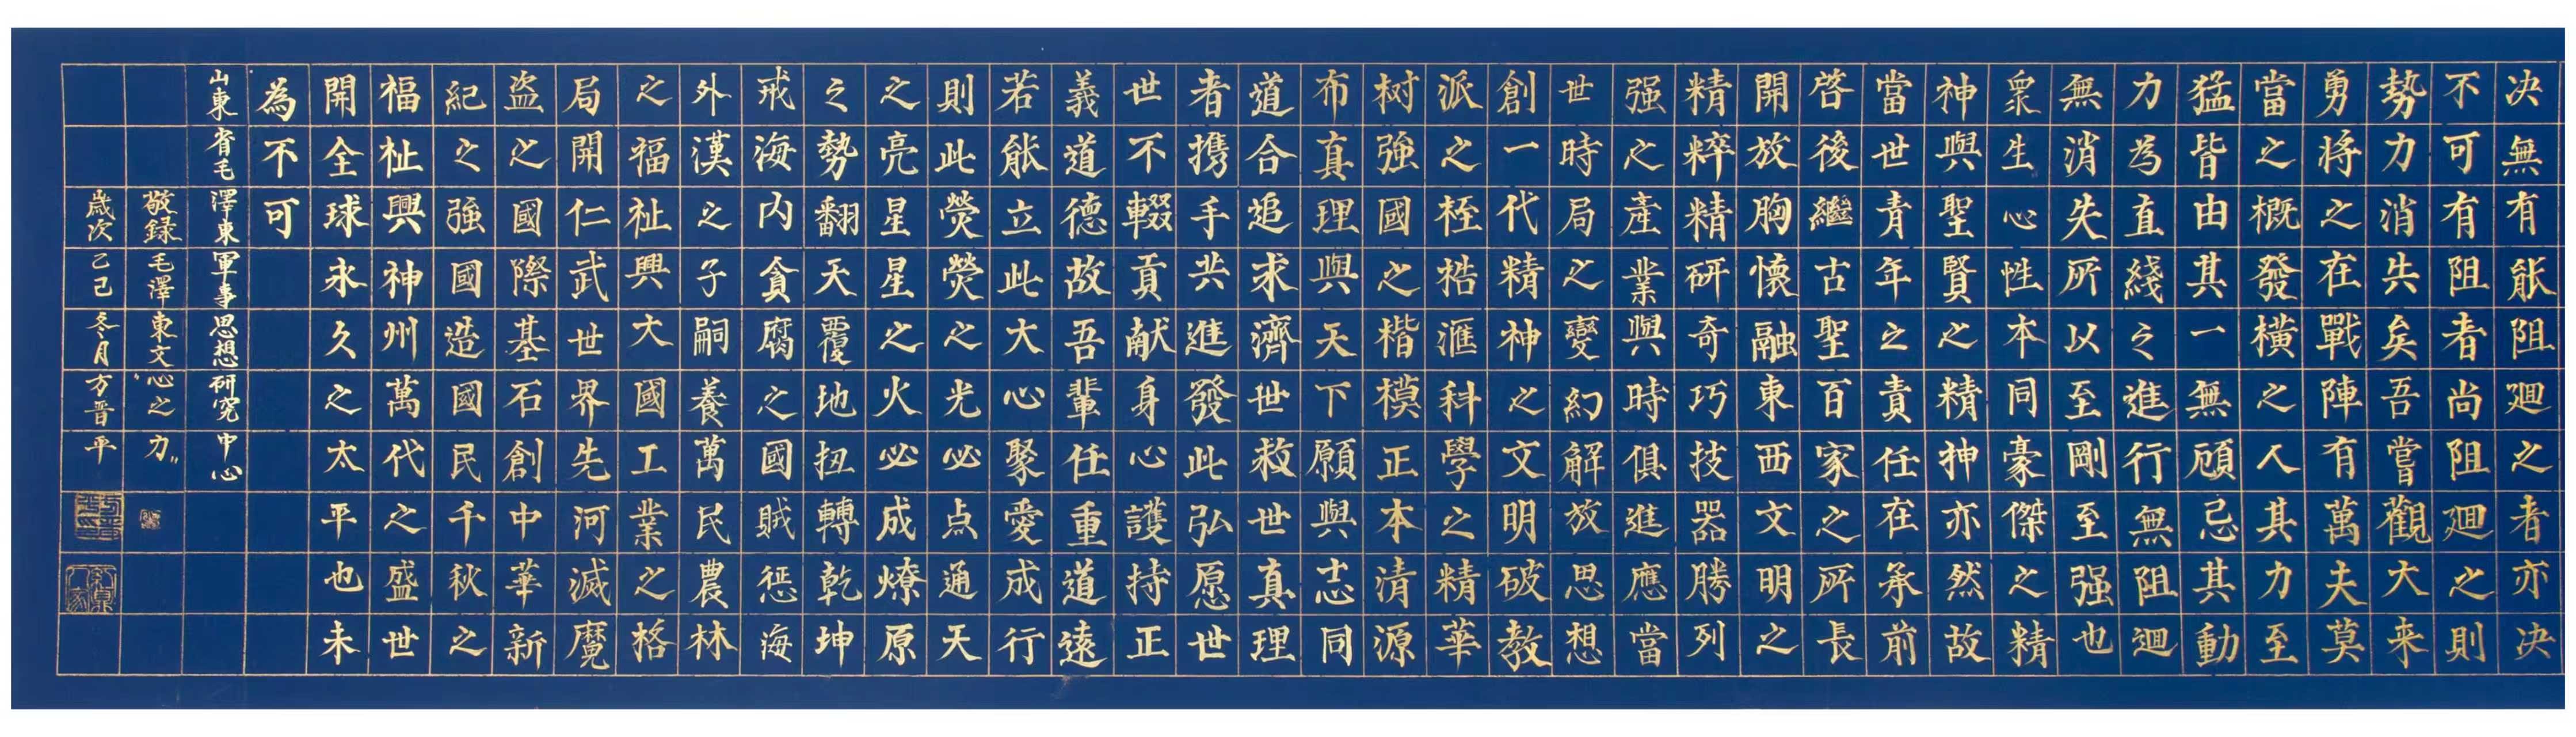 决無有能阻迴之者亦决
不可有阻者尚阻迴之則
勢力消失矣吾嘗觀大来
勇将之在戰陣有萬夫莫
當之概發横之人其力至
猛皆由其一無頋忌其動
力為直綫之進行無阻迴
無消失所以至剛至强也
衆生心性本同豪傑之精
神與聖賢之精神亦然故
當世青年之責任在承前
啓後繼古聖百家之所長
開放胸懷融東西文明之
精粹精研奇巧技器勝列
强之產業與時俱進應當
世時局之變幻解放思想
創一代精神之文明破教
派之桎梏滙科學之精華
树強國之楷模正本清源
布真理與天下願與志同
道合追求濟世救世真理
者携手共進發此弘愿世
世不輟貢献身心護持正
義道德故吾輩任重道遠
若能立此大心聚愛成行
則此熒熒之光必点通天
之亮星星之火必成燎原
之勢翻天覆地扭轉乾坤
戒海内貪腐之國賊惩海
外漢之子嗣養萬民農林
之福祉興大國工業之格
局開仁武世界先河滅魔
盗之國際基石創中華新
紀之強國造國民千秋之
福祉興神州萬代之盛世
開全球永久之太平也未
為不可
山東省毛澤東軍事思想研究中心
敬録毛澤東文"心之力"
歲次乙己冬月方晋平